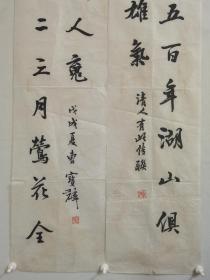 五百年湖山俱
雄氣
清人有此聯
二三月鶯花全
人
戊戌夏曹寶麟